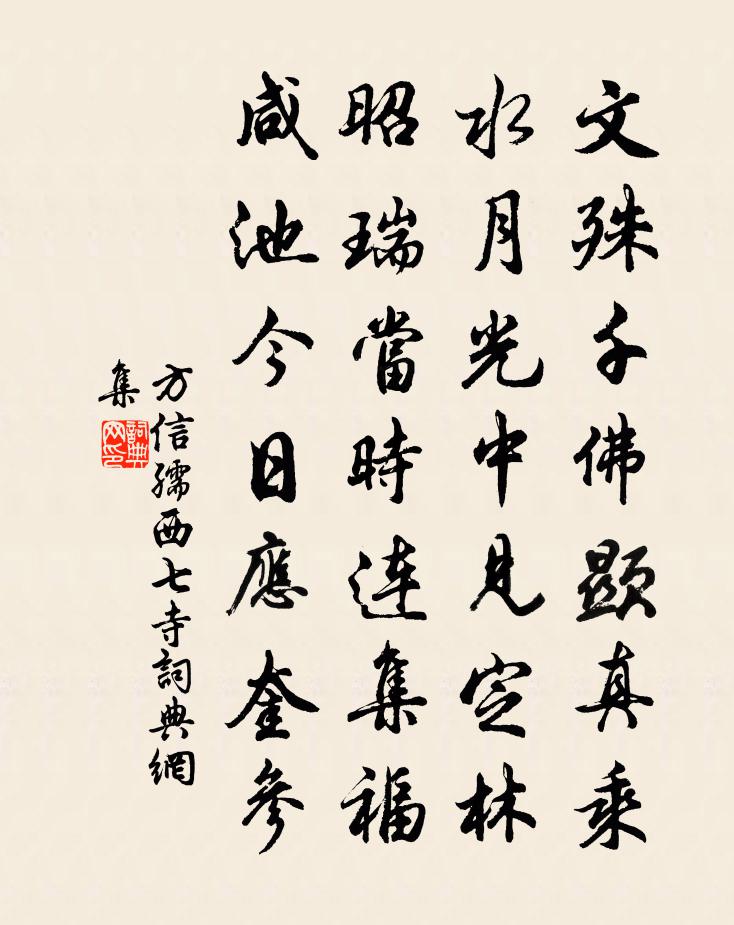 文殊千佛顯真乘
水月光中見定林
昭瑞當時連集福
咸池今日應奎參
方信孺西七寺詞典網
集
詞典
网印